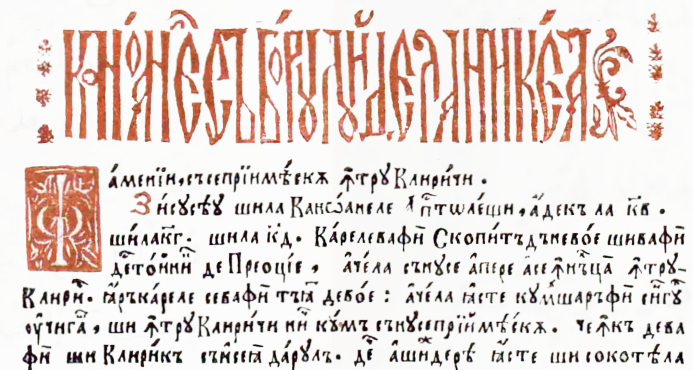 КАНОАНЕ СЪБОРꙋЛꙋЙ ДЕЛА НИКЕА
Ф амении, съсепрїимѣскѫ ꙟтрꙋ Клиричи.
Зисꙋсѣꙋ шила Канѡанеле а҆пⷭ҇тѡлещи, адекъ ла к҃в.
шилак҃г. шила к҃д. Карелевафи Скопитъдъневое шивафи
детоиний де Преоцїе, ачела сънꙋсе апере ꙟтрꙋ-
Клири. ꙗръкареле севафи тъꙗ девое : ачела ꙗсте кꙋмшаръфи сингꙋ
оучига, ши ꙟтрꙋ Клиричи кꙋмъ сънꙋсеприймѣскѫ. чеꙟкъ дева
фи ши Клирикъ съйсеꙗ дарꙋль. де ашидерѣ ꙗсте ши сокотѣла